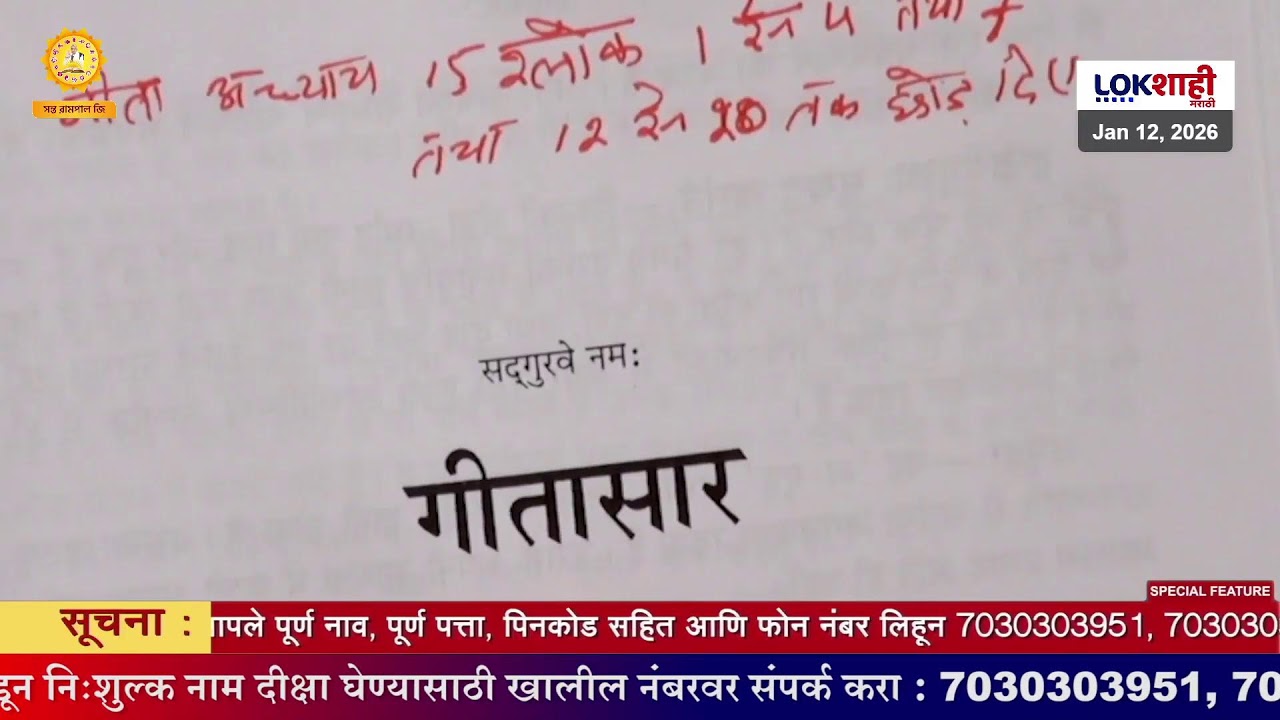 गीता अध्याय 15 श्लोक 1 से 4 तथा
तथा 12 से 20 तक छोड़ दिए
सन्त रामपाल जि
LOKशाही
मराठी
Jan 12, 2026
सद्‌गुरवे नम:
गीतासार
SPECIAL FEATURE
सूचना : आपले पूर्ण नाव, पूर्ण पत्ता, पिनकोड सहित आणि फोन नंबर लिहून 7030303951, 703030
निःशुल्क नाम दीक्षा घेण्यासाठी खालील नंबरवर संपर्क करा : 7030303951, 70